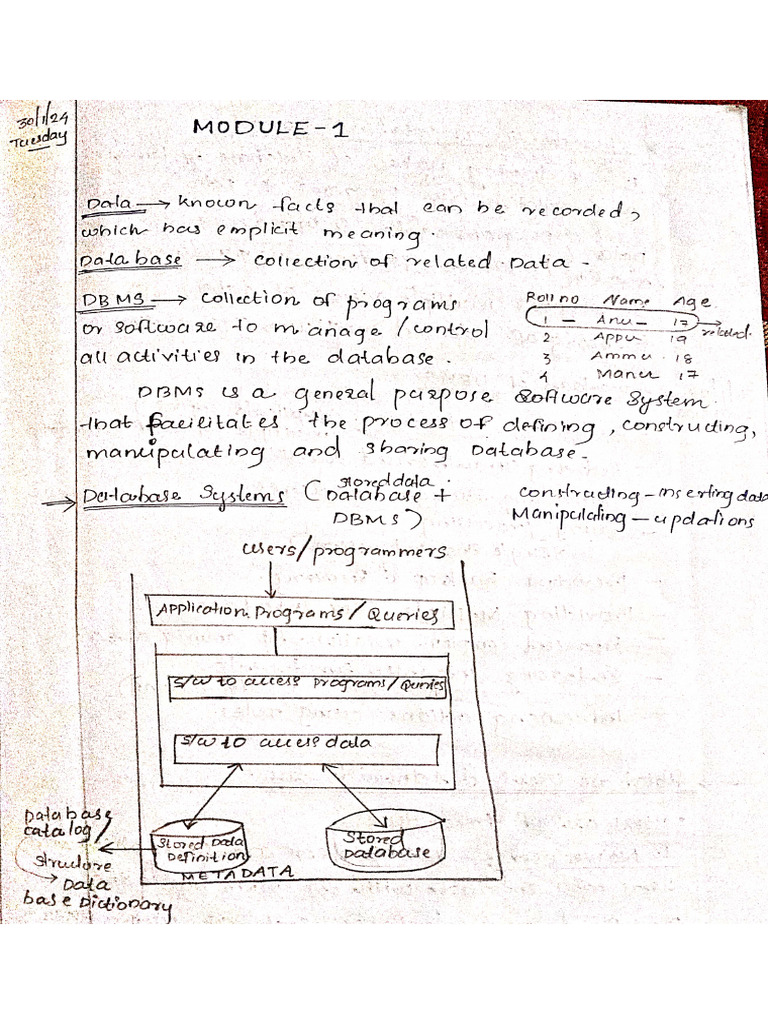 30/1/24
Tuesday
MODULE-1
Data → known facts that can be recorded,
which has emplicit meaning.
Database → collection of related Data -
DBMS → collection of programs
or software to manage/control
all activities in the database.
Roll no Name Age
1 - Anu - 17 → related.
2 Appu 19
3 Ammu 18
4 Manu 17
DBMS is a general purpose software system
that facilitates the process of defining, constructing,
manipulating and sharing Database.
→ Database Systems (Database + DBMS)
stored data
constructing - inserting data
Manipulating - updations
users/programmers
Application Programs/Queries
S/W to access programs/Queries
S/W to access data
Stored Data
Definition
METADATA
Stored
Database
Database
catalog/
structure
→ Data
base Dictionary